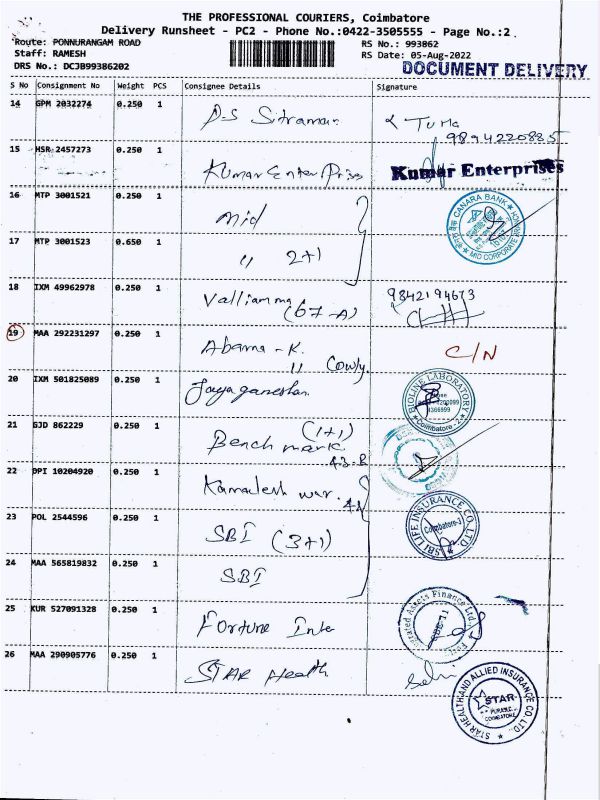 THE PROFESSIONAL COURIERS, Coimbatore
Delivery Runsheet - PC2 - Phone No.:0422-3505555 - Page No.:2
Route: PONNURANGAM ROAD RS No.: 993862
Staff: RAMESH RS Date: 05-Aug-2022
DRS No.: DCJB99386202 DOCUMENT DELIVERY
S No Consignment No Weight PCS Consignee Details Signature
14 GPM 2032274 0.250 1
9894220885
15 HSR 2457273 0.250 1
Kumar Enterprises
16 MTP 3001521 0.250 1
Mid
CANARA BANK
MID CORPORATE BRANCH
17 MTP 3001523 0.650 1
" 2+1
18 IXM 49962978 0.250 1
Valliamma 9842194673
(67-A)
19 MAA 292231297 0.250 1
Abarna - K. C/N
"
20 IXM 501825089 0.250 1
Jayaganeshan
BIOLINE LABORATORY
Coimbatore - 2
21 GJD 862229 0.250 1
(1+1)
Bench mark
22 DPI 10204920 0.250 1
Kamalesh
23 POL 2544596 0.250 1
SBI (3+1)
SBI LIFE INSURANCE CO. LTD.
Coimbatore-3
24 MAA 565819832 0.250 1
SBI
25 KUR 527091328 0.250 1
Fortune Inte
26 MAA 290905776 0.250 1
STAR Health
STAR HEALTH AND ALLIED INSURANCE CO. LTD.
STAR
COIMBATORE